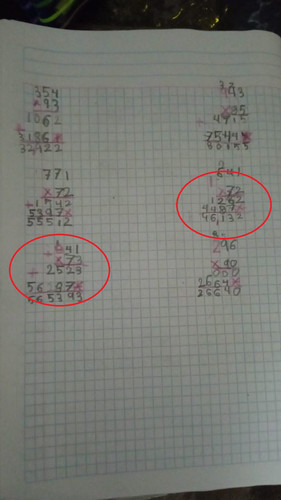 354
×93
1062
+
3186×
32922
771
×72
+1542
5397×
55512
841
×73
+2523
56187×
565393
983
×85
+4915
7544×
80155
641
×72
1282
4487×
46,132
296
×90
000
2664×
26690